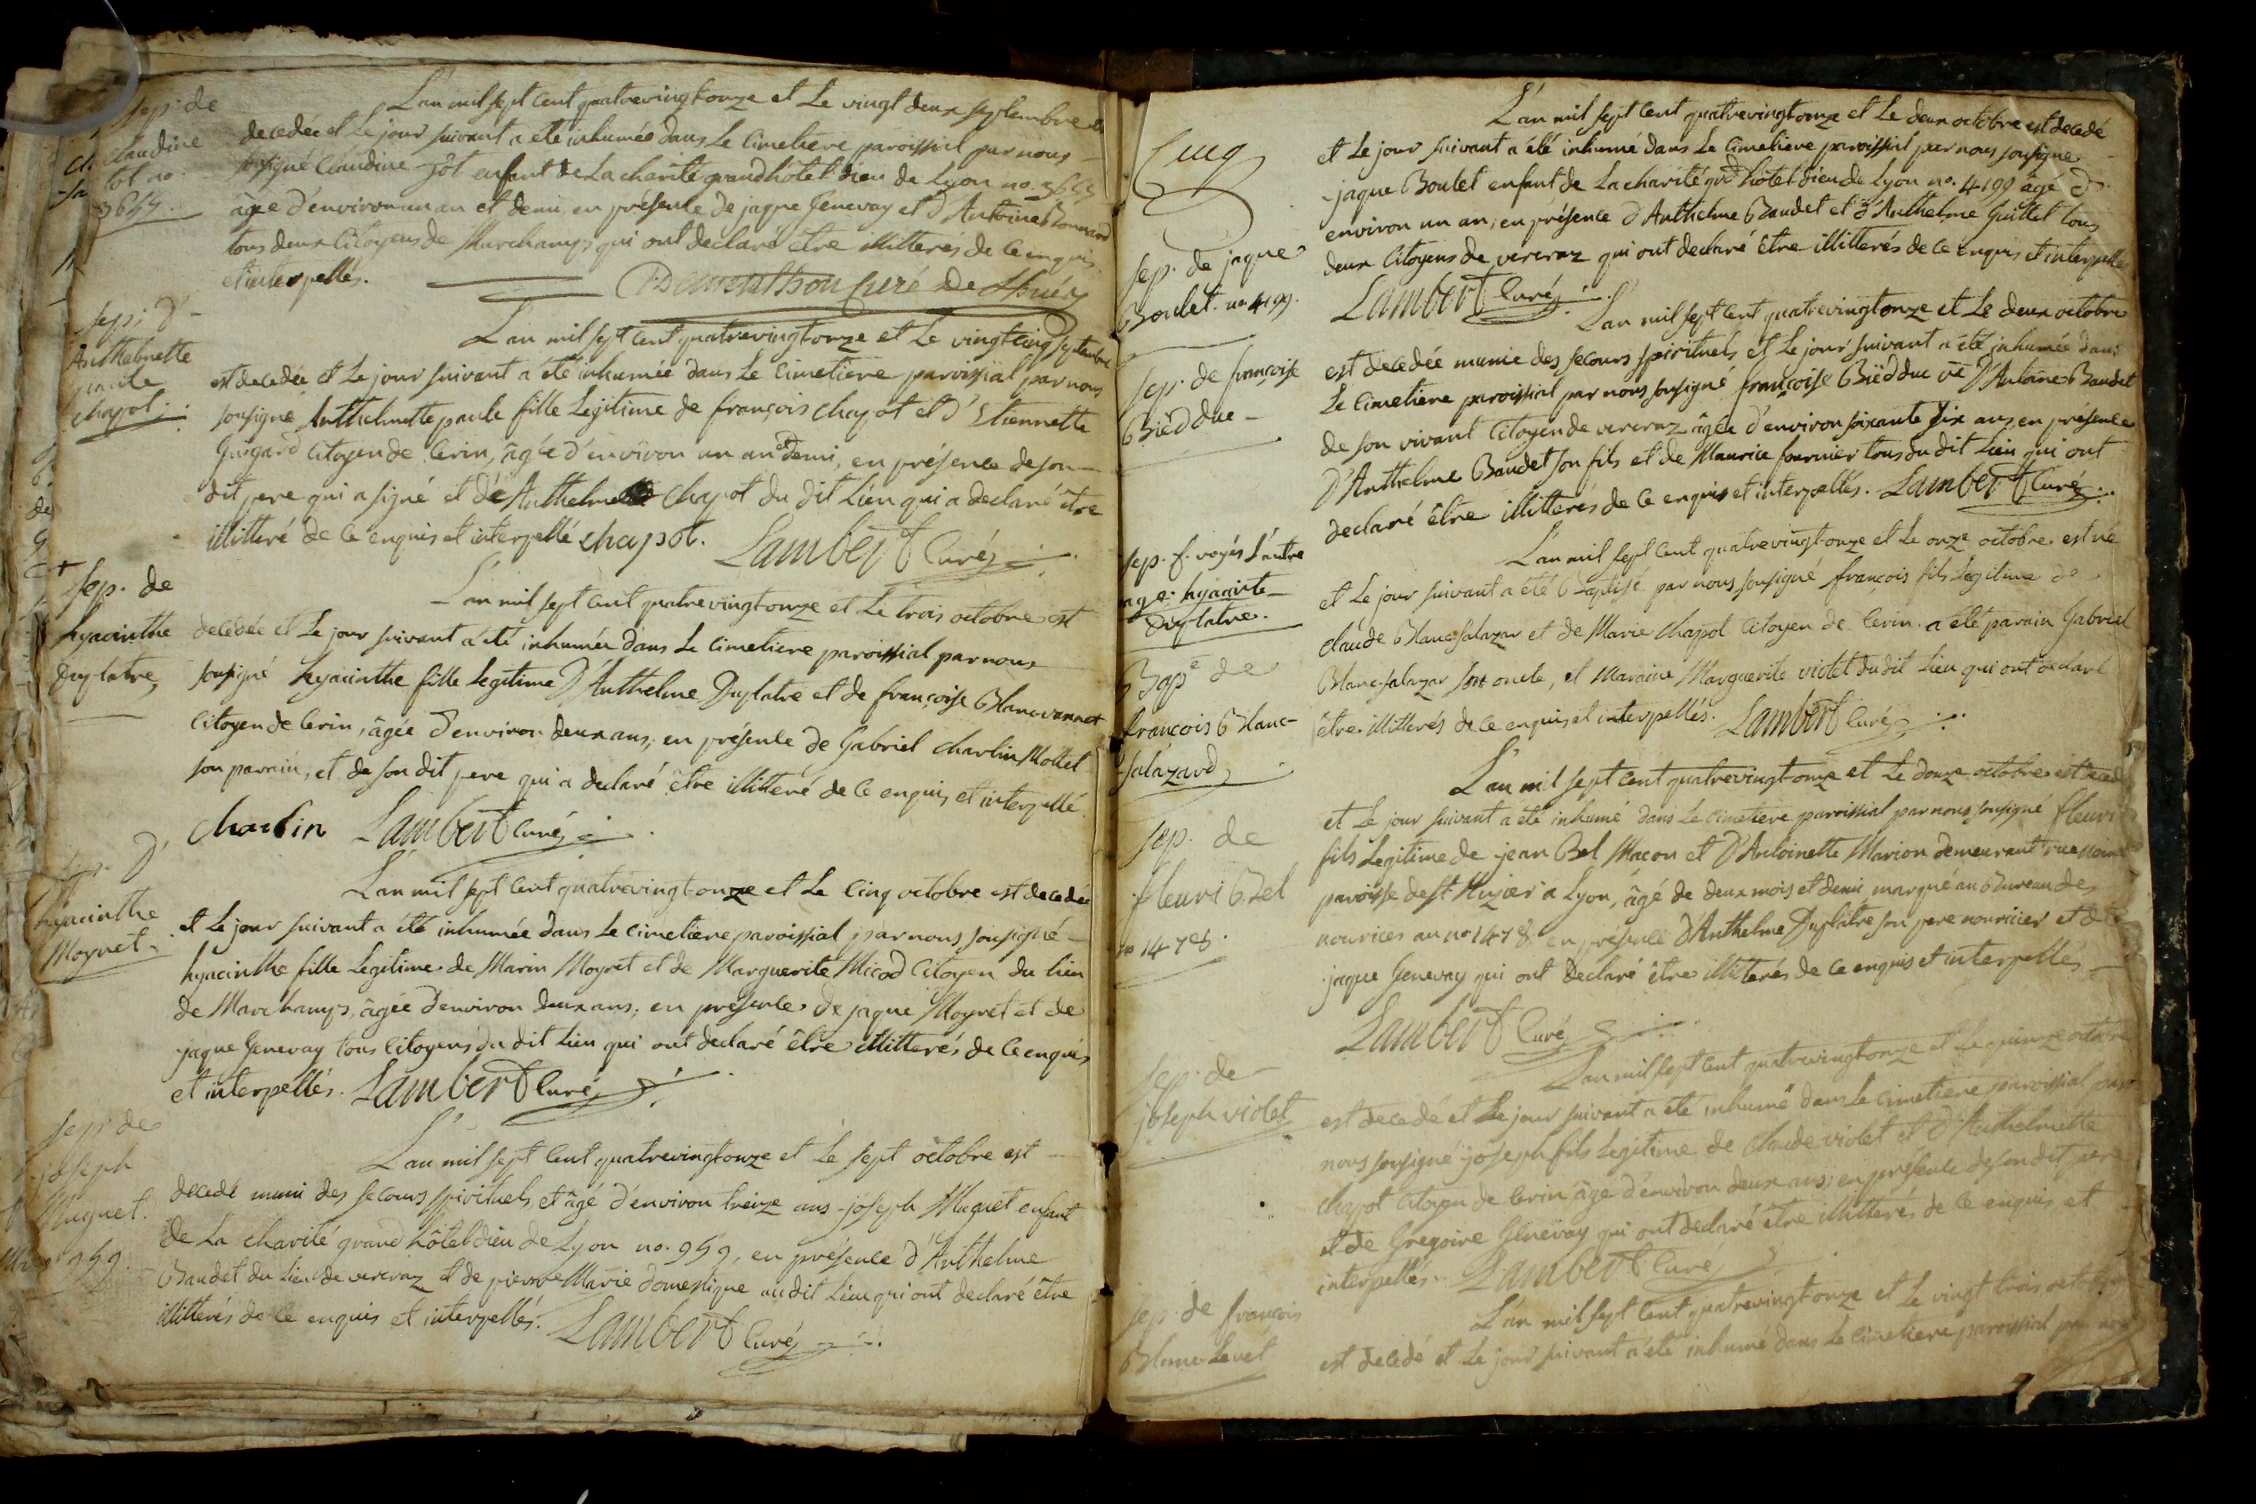 sep. de
claudine
tôt no.
3655.
L'an mil sept cent quatrevingt onze et Le vingt deux septembre est
decedée et Le jour suivant a été inhumée dans Le cimetiere paroissial par nous
sousigné claudine tôt enfant de La charité grand hôtel dieu de Lyon no. 3655
âgée d'environ un an et demi, en présence de jaque Genevay et d'Antoine Bonnard
tous deux Citoyens de Marchamps qui ont declaré être illitterés de ce enquis
et interpellés.
Curé de
sep. d'
Anthelmette
paule
chapot.
L'an mil sept cent quatrevingt onze et Le vingt cinq septembre
est decedée et Le jour suivant a été inhumée dans Le cimetiere paroissial par nous
sousigné Anthelmette paule fille Legitime de françois chapot et d'Etiennette
Guigard Citoyen de Cerin, âgée d'environ un an et demi, en présence de son
dit pere qui a signé et de Anthelme chapot du dit Lieu qui a declaré être
illitteré de ce enquis et interpellé chapot. Lambert Curé
sep. de
hyacinthe
Duplatre
L'an mil sept cent quatrevingt onze et Le trois octobre est
decedée et Le jour suivant a été inhumée dans Le cimetiere paroissial par nous
sousigné hyacinthe fille Legitime d'Anthelme Duplatre et de françoise Blanc vannet
Citoyen de Cerin, âgée d'environ deux ans, en présence de Gabriel charlin Mollet
son parain, et de son dit pere qui a declaré être illitteré de ce enquis et interpellé
charlin Lambert Curé
sep. d'
hyacinthe
Moyret
L'an mil sept cent quatrevingt onze et Le cinq octobre est decedée
et Le jour suivant a été inhumée dans Le cimetiere paroissial par nous sousigné
hyacinthe fille Legitime de Marin Moyret et de Marguerite Micod Citoyen du lieu
de Marchamps, âgée d'environ deux ans, en présence de jaque Moyret et de
jaque Genevay tous Citoyens du dit Lieu qui ont declaré être illitterés de ce enquis
et interpellés. Lambert Curé
sep. de
joseph
Muguet.
959.
L'an mil sept cent quatrevingt onze et Le sept octobre est
decedé muni des secours spirituels et âgé d'environ treize ans joseph Muguet enfant
de La charité grand hôtel dieu de Lyon no. 959, en présence d'Anthelme
Baudet du Lieu de vercraz et de pierre Marie domestique au dit Lieu qui ont declaré être
illitterés de ce enquis et interpellés. Lambert Curé
Cinq
sep. de jaque
Boulet. no. 4199.
L'an mil sept cent quatrevingt onze et Le deux octobre est decedé
et Le jour suivant a été inhumé dans Le cimetiere paroissial par nous sousigné
jaque Boulet enfant de La charité grd hôtel dieu de Lyon no. 4199 âgé d'
environ un an, en présence d'Anthelme Baudet et d'Anthelme Guillet tous
deux Citoyens de vercraz qui ont declaré être illitterés de ce enquis et interpellés
Lambert Curé
sep. de françoise
Biéd duc
L'an mil sept cent quatrevingt onze et Le deux octobre
est decedée munie des secours spirituels, et Le jour suivant a été inhumée dans
Le cimetiere paroissial par nous sousigné françoise Biéd duc ve d'Antoine Baudet
de son vivant Citoyen de vercraz âgée d'environ soixante dix ans, en présence
d'Anthelme Baudet son fils et de Maurice fournier tous du dit Lieu qui ont
declaré être illitterés de ce enquis et interpellés. Lambert Curé
sep. f. voyés L'autre
page hyacinte
Duplatre.
Bapê de
françois Blanc-
Salazard
L'an mil sept cent quatrevingt onze et Le onze octobre est né
et Le jour suivant a été Baptisé par nous sousigné françois fils Legitime de
claude Blanc Salazar et de Marie chapot Citoyen de Cerin. a été parain Gabriel
Blanc Salazar son oncle, et Maraine Marguerite violet du dit Lieu qui ont declaré
être illitterés de ce enquis et interpellés. Lambert Curé
sep. de
fleuri Bel
no 1478.
L'an mil sept cent quatrevingt onze et Le douze octobre est decedé
et Le jour suivant a été inhumé dans Le cimetiere paroissial par nous sousigné fleuri
fils Legitime de jean Bel Maçon et d'Antoinette Marion demeurant rue
paroisse de st Nizier a Lyon, âgé de deux mois et demi, marqué au Bureau des
nourices au no 1478 en présence d'Anthelme Duplatre son pere nouricier et de
jaque Genevay qui ont declaré être illitterés de ce enquis et interpellés
Lambert Curé
sep. de
joseph violet
L'an mil sept cent quatrevingt onze et Le quinze octobre
est decedé et Le jour suivant a été inhumé dans Le cimetiere paroissial par
nous sousigné joseph fils Legitime de claude violet et d'Anthelmette
chapot Citoyen de Cerin âgé d'environ deux ans, en présence de son dit pere
et de Gregoire Genevay qui ont declaré être illitterés de ce enquis et
interpellés. Lambert Curé
sep. de françois
Blanc Levet
L'an mil sept cent quatrevingt onze et Le vingt trois octobre
est decedé et Le jour suivant a été inhumé dans Le cimetiere paroissial par nous